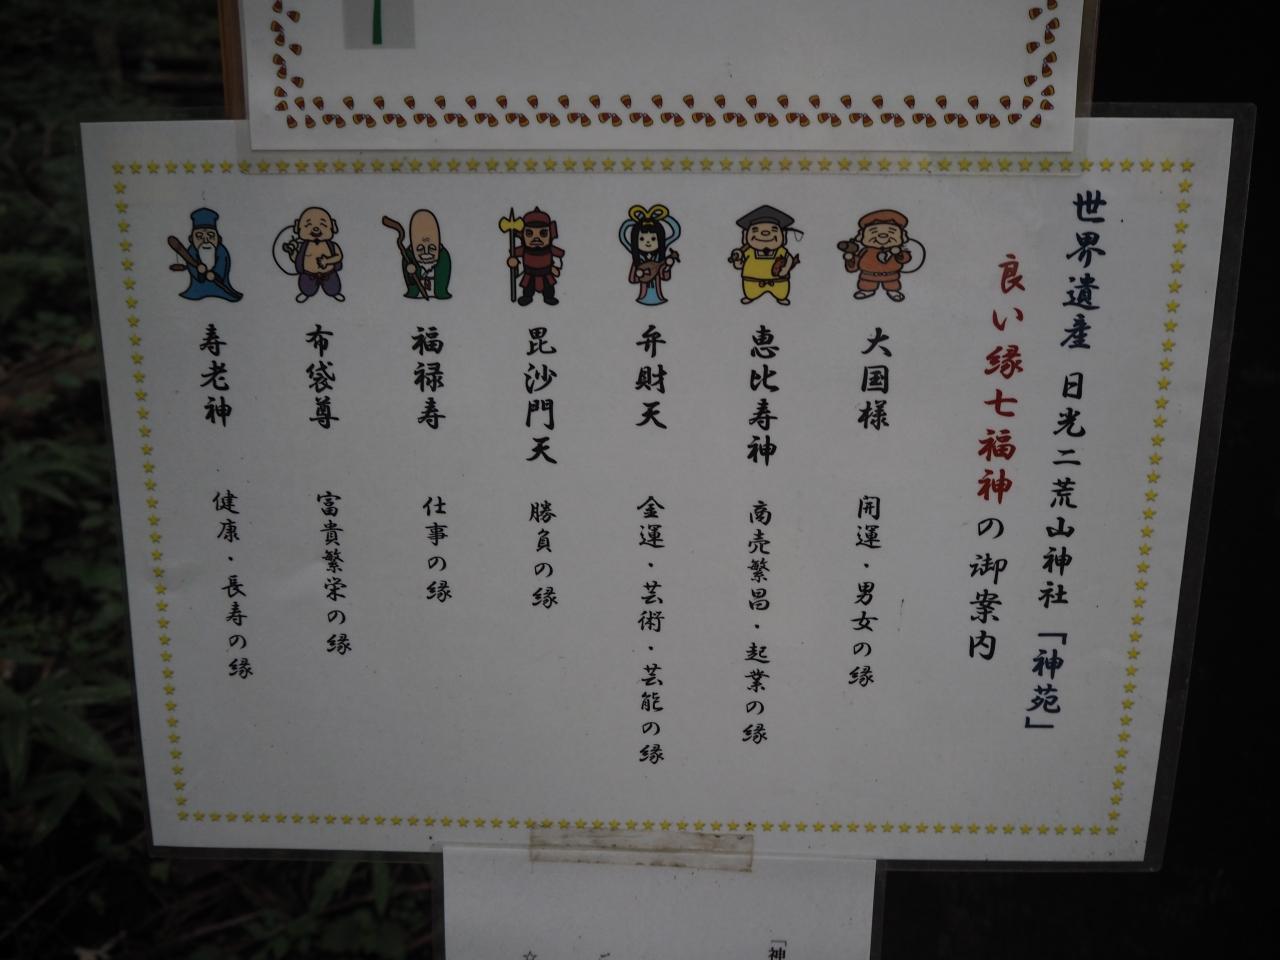 世界遺産 日光二荒山神社「神苑」
良い縁七福神の御案内
大国様 開運・男女の縁
恵比寿神 商売繁昌・起業の縁
弁財天 金運・芸術・芸能の縁
毘沙門天 勝負の縁
福禄寿 仕事の縁
布袋尊 富貴繁栄の縁
寿老神 健康・長寿の縁
「神